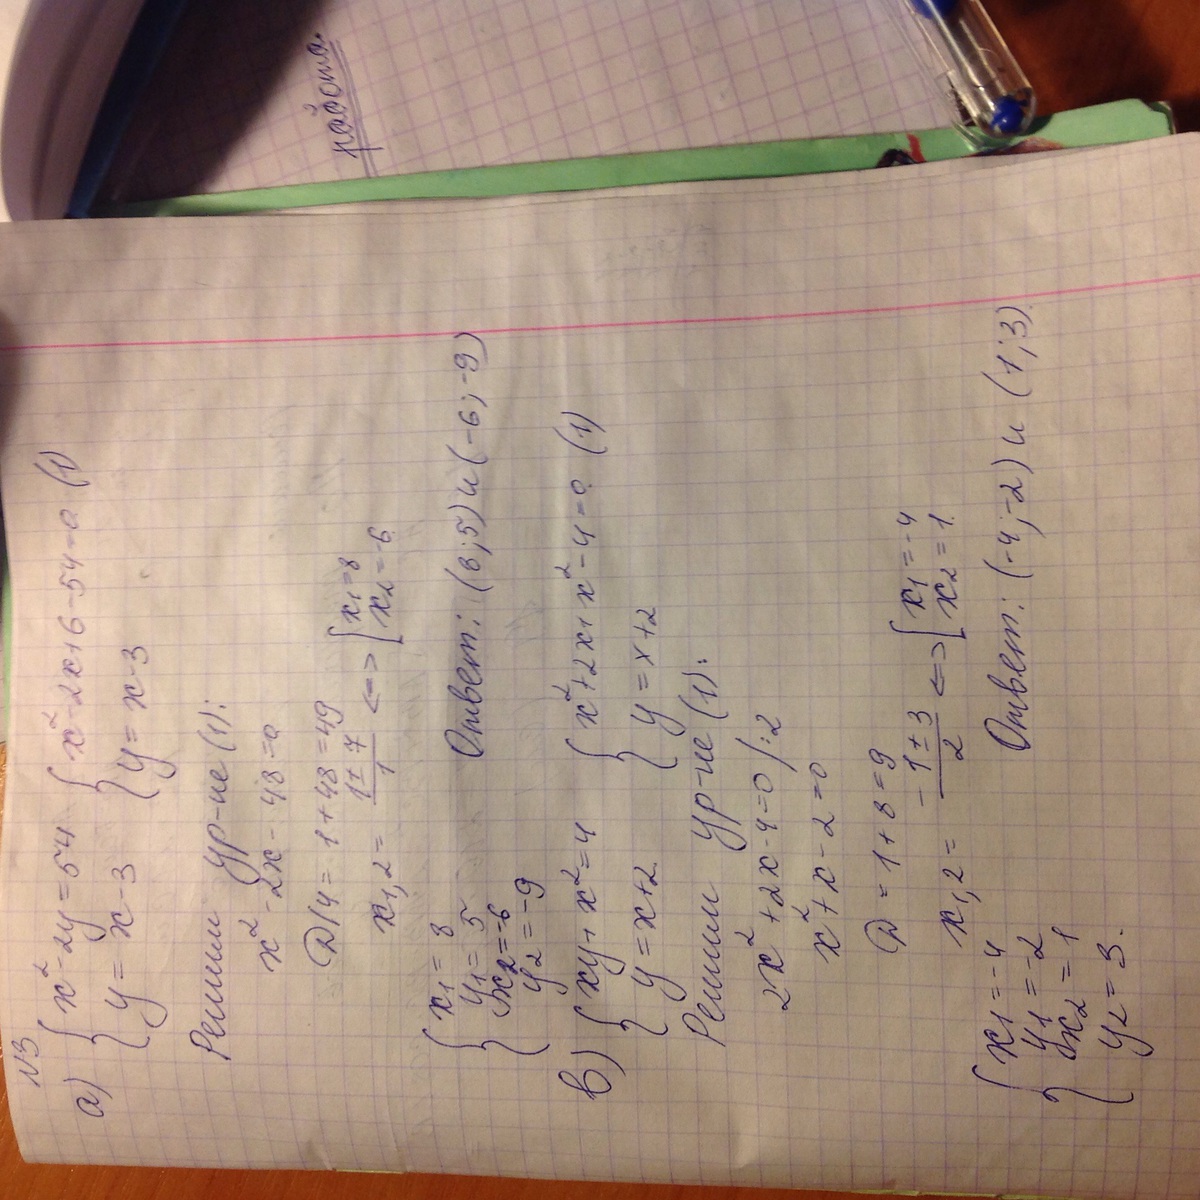 работа.
N3
а) { x² - 2y = 54 { x² - 2x + 6 - 54 = 0 (1)
{ y = x - 3 { y = x - 3
Решим ур-ие (1):
x² - 2x - 48 = 0
D/4 = 1 + 48 = 49
x1,2 = (1 ± 7)/1 <=> [ x1 = 8
[ x2 = -6
{ x1 = 8
y1 = 5
{ x2 = -6
y2 = -9
Ответ: (8; 5) и (-6; -9)
в) { xy + x² = 4 { x² + 2x + x² - 4 = 0 (1)
{ y = x + 2 { y = x + 2
Решим ур-ие (1):
2x² + 2x - 4 = 0 /:2
x² + x - 2 = 0
D = 1 + 8 = 9
x1,2 = (-1 ± 3)/2 <=> [ x1 = -4
[ x2 = 1
{ x1 = -4
y1 = -2
{ x2 = 1
y2 = 3.
Ответ: (-4; -2) и (1; 3)